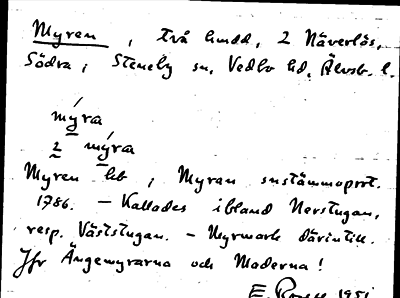 Myren, två hmdd, 2 Näverlös,
Södra, Steneby sn, Vedbo hd, Älvsb. l.
mýra
2 mýra
Myren hb, Myran sustämmoprot.
1786. – Kallades ibland Norstugan,
resp. Väststugan. – Myrmark därintill.
Jfr Ängemyrarna och Moderna!
E. 1951